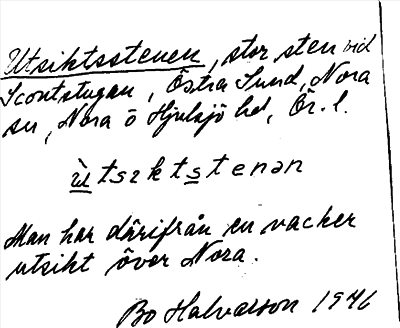 Utsiktsstenen, stor sten vid
Scoutstugan, Östra Sund, Nora
sn, Nora o Hjulsjö hd, Ör. l.
ùtsɪktstenən
Man har därifrån en vacker
utsikt över Nora.
Bo Halvarson 1946